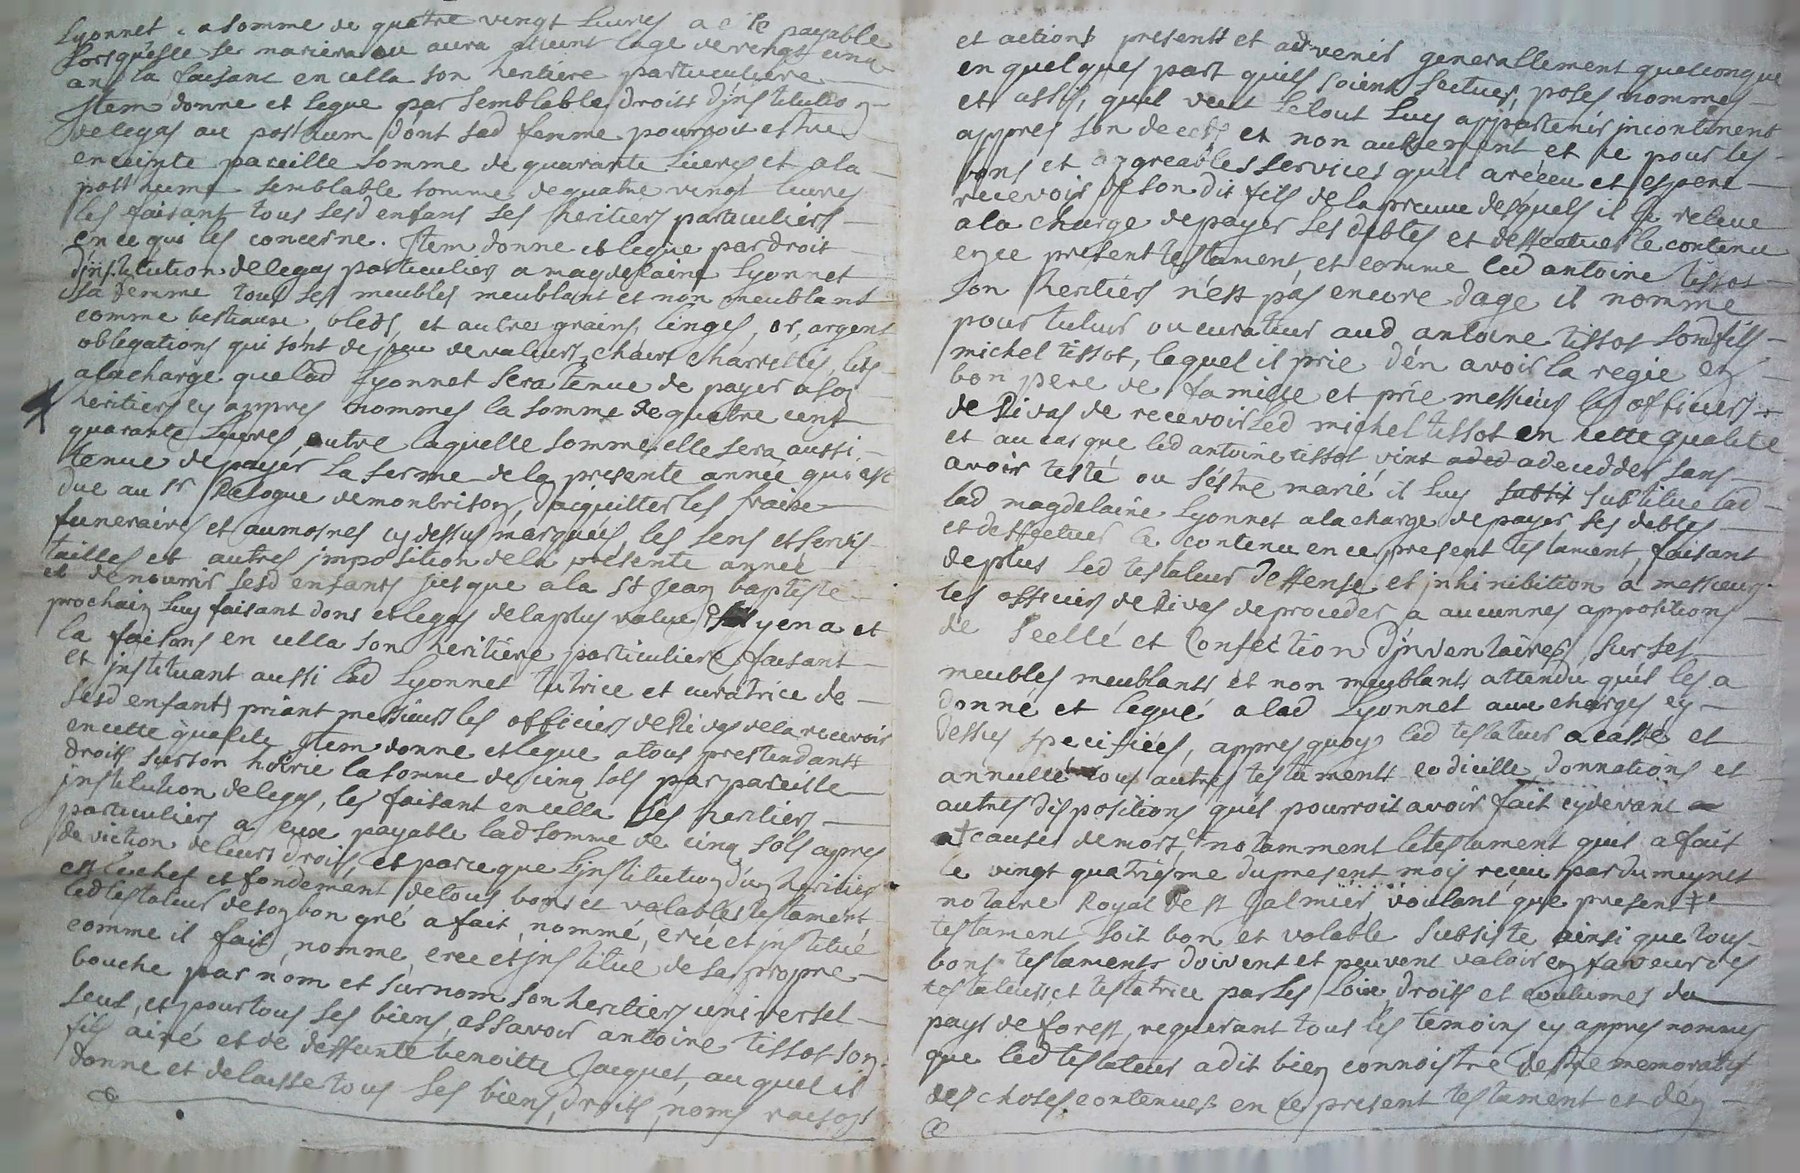 Lyonnet la somme de quatre vingt livres a elle payable
lorsquesle se mariera ou aura atteint lage de vingt cinq
ans la faisant en cella son heritiere particuliere
Jtem donne et legue par semblable droitt djnstitution
de legas au posthum dont sad femme pourroit estre
enceinte pareille somme de quarante livres et a la
posthume semblable somme de quatre vingt livres
les faisant tous sesd enfans ses heritiers particuliers
en ce qui les concerne. Jtem donne et legue par droit
djnstitution de legas particulier a magdelaine Lyonnet
sa femme tous ses meubles meublant et non meublant
comme bestiaux, bleds, et autres grains, linges, or, argent
obligations qui sont de peu de valeurs, chars charrettes, lits
a la charge que lad Lyonnet sera tenue de payer a son
heritiers cy appres nommes la somme de quatre cent
quarante livres, outre laquelle somme elle sera aussi
tenue de payer la ferme de la presente année qui est
due au sr Relogue de monbrison, dacquitter les fraix
funeraires et aumosnes cy dessus marqués, les sens et servis
tailles et autres jmposition de la presente année
et de nourrir sesd enfants jusque a la st Jean baptiste
prochain luy faisant dons et legas de la plus value sil y en a et
la faisans en cella son heritiere particuliere, faisant
et jnstituant aussi lad Lyonnet tutrice et curatrice de
sesd enfants priant messieurs les officiers de Rivas de la recevoir
en cette qualite Jtem donne et legue a tous prestendants
droits sur son hoirie la somme de cinq sols par pareille
jnstitution de legas, les faisant en cella ses heritiers
particuliers a eux payable lad somme de cinq sols apres
deviction de leurs droits, et parce que Ljnstitution dun heritier
est le chef et fondement de tous bons et valables testament
led testateur de son bon gré a fait, nommé, créé et jnstitué
comme il fait, nomme, cree et jnstitue de sa propre
bouche par nom et surnom son heritiers universel
seul, et pour tous ses biens, assavoir antoine tissot son
fils ainé et de deffunte benoitte Jacquet, au quel il
donne et delaisse tous ses biens, droits, noms raisons
et actions presents et advenir generallement quelconque
en quelques part quils soient scitues, posés nommés
et assis, quil veut le tout luy appartenir jncontinent
appres son deceds et non autrement et ce pour les
bons et aggreables services quil a receu et espere
recevoir de son dit fils de la preuve desquels il le releve
a la charge de payer ses debtes et deffectuer le contenu
en ce present testament, et comme led antoine tissot
son heritiers n'est pas encore dage il nomme
pour tuteur ou curateur aud antoine tissot sond fils
michel tissot, lequel il prie d'en avoir la regie en
bon pere de famille et prie messieurs les officiers
de Rivas de recevoir led michel tissot en cette qualité
et au cas que led antoine tissot vint aded a decedder sans
avoir testé ou s'estre marié il luy substit substitue lad
lad magdelaine Lyonnet a la charge de payer ses debtes
et deffectuer le contenu en ce present testament, faisant
de plus led testateur deffense et jnhinibition a messieurs
les officiers de Rivas de proceder a aucunnes apposition
de scellé et Confection djnventaires sur ses
meubles meublants et non meublants attendu quil les a
donne et legué a lad Lyonnet aux charges cy
dessus specifiées, appres quoy led testateur a cassé et
annullé tous autres testaments codicille donnations et
autres dispositions quil pourroit avoir fait cydevant
a causes de mort, et notamment le testament quil a fait
le vingt quatriesme du present mois receu par dumeynet
notaire Royal de st Galmier voulant que present
testament soit bon et valable subsiste ainsi que tous
bons testaments doivent et peuvent valoir en faveur des
testateurs et testatrice par les loix, droits et coutumes du
pays de forest, requerant tous les temoins cy appres nommes
que led testateur a dit bien connoistre destre memoratif
des choses contenues en ce present testament et den